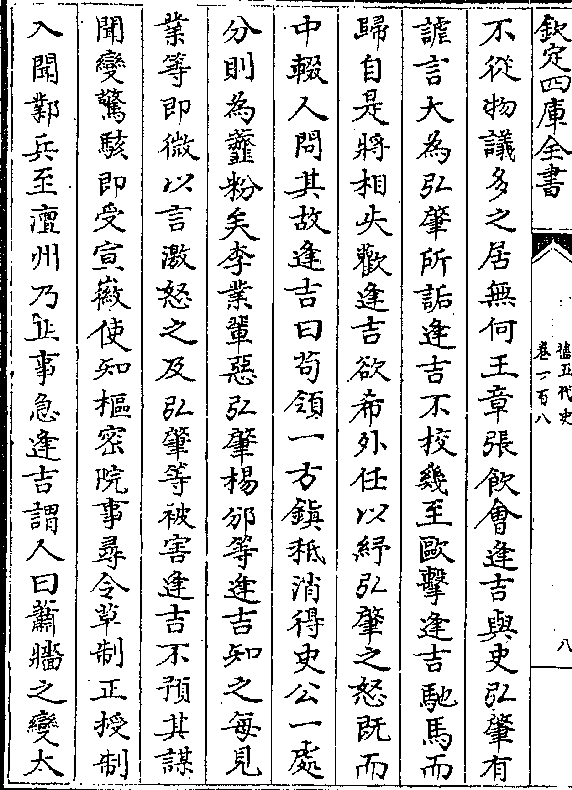 欽定四庫全書
舊五代史
卷一百八
八
不從物議多之居無何王章張飲會逢吉與史弘肇有
謔言大為弘肇所詬逢吉不校幾至毆擊逢吉馳馬而
歸自是將相失歡逢吉欲希外任以紓弘肇之怒既而
中輟人問其故逢吉曰苟領一方鎮秪消得史公一處
分則為虀粉矣李業輩惡弘肇楊邠等逢吉知之每見
業等即微以言激怒之及弘肇等被害逢吉不預其謀
聞變驚駭即受宣徽使知樞密院事尋令草制正授制
入聞鄴兵至澶州乃止事急逢吉謂人曰蕭牆之變太